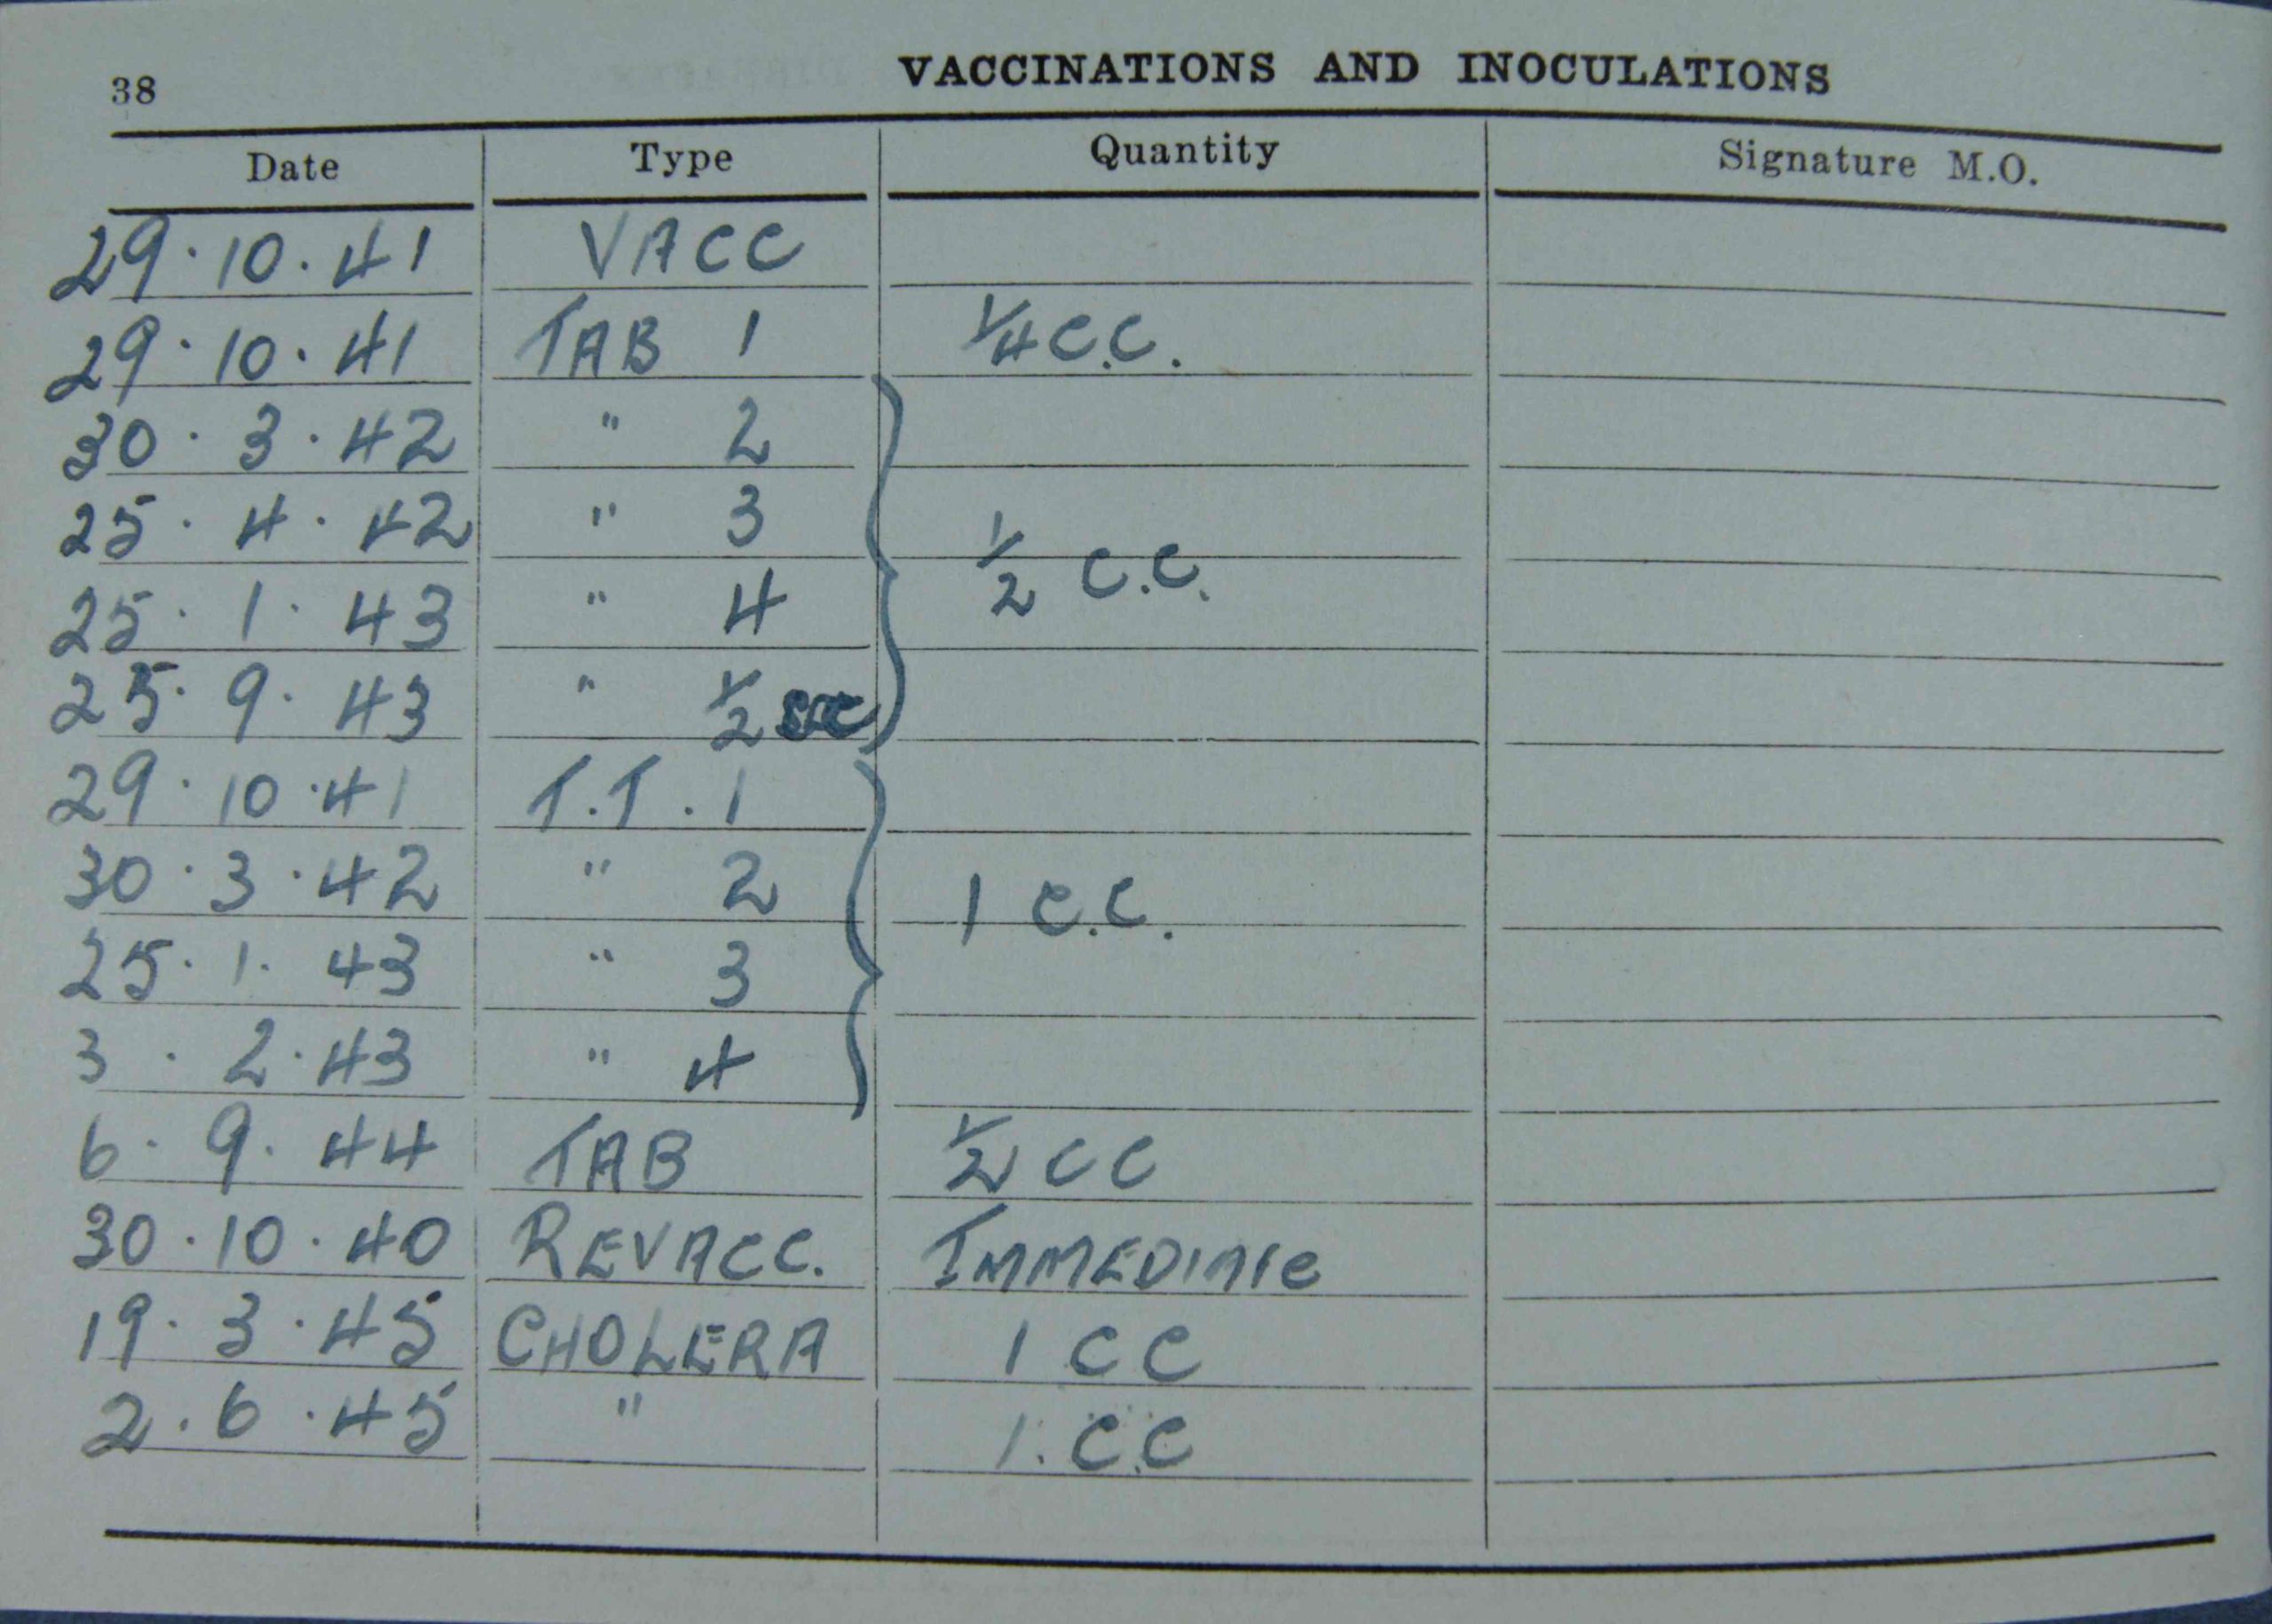 38 VACCINATIONS AND INOCULATIONS
Date Type Quantity Signature M.O.
29.10.41 VACC
29.10.41 TAB 1 1/4 C.C.
30.3.42 " 2
25.4.42 " 3
1/2 C.C.
25.1.43 " 4
25.9.43 " 1/2
29.10.41 T.T. 1
30.3.42 " 2
1 C.C.
25.1.43 " 3
3.2.43 " 4
6.9.44 TAB 1/2 CC
30.10.40 REVACC. IMMEDIATE
19.3.45 CHOLERA 1 CC
2.6.45 " 1.CC